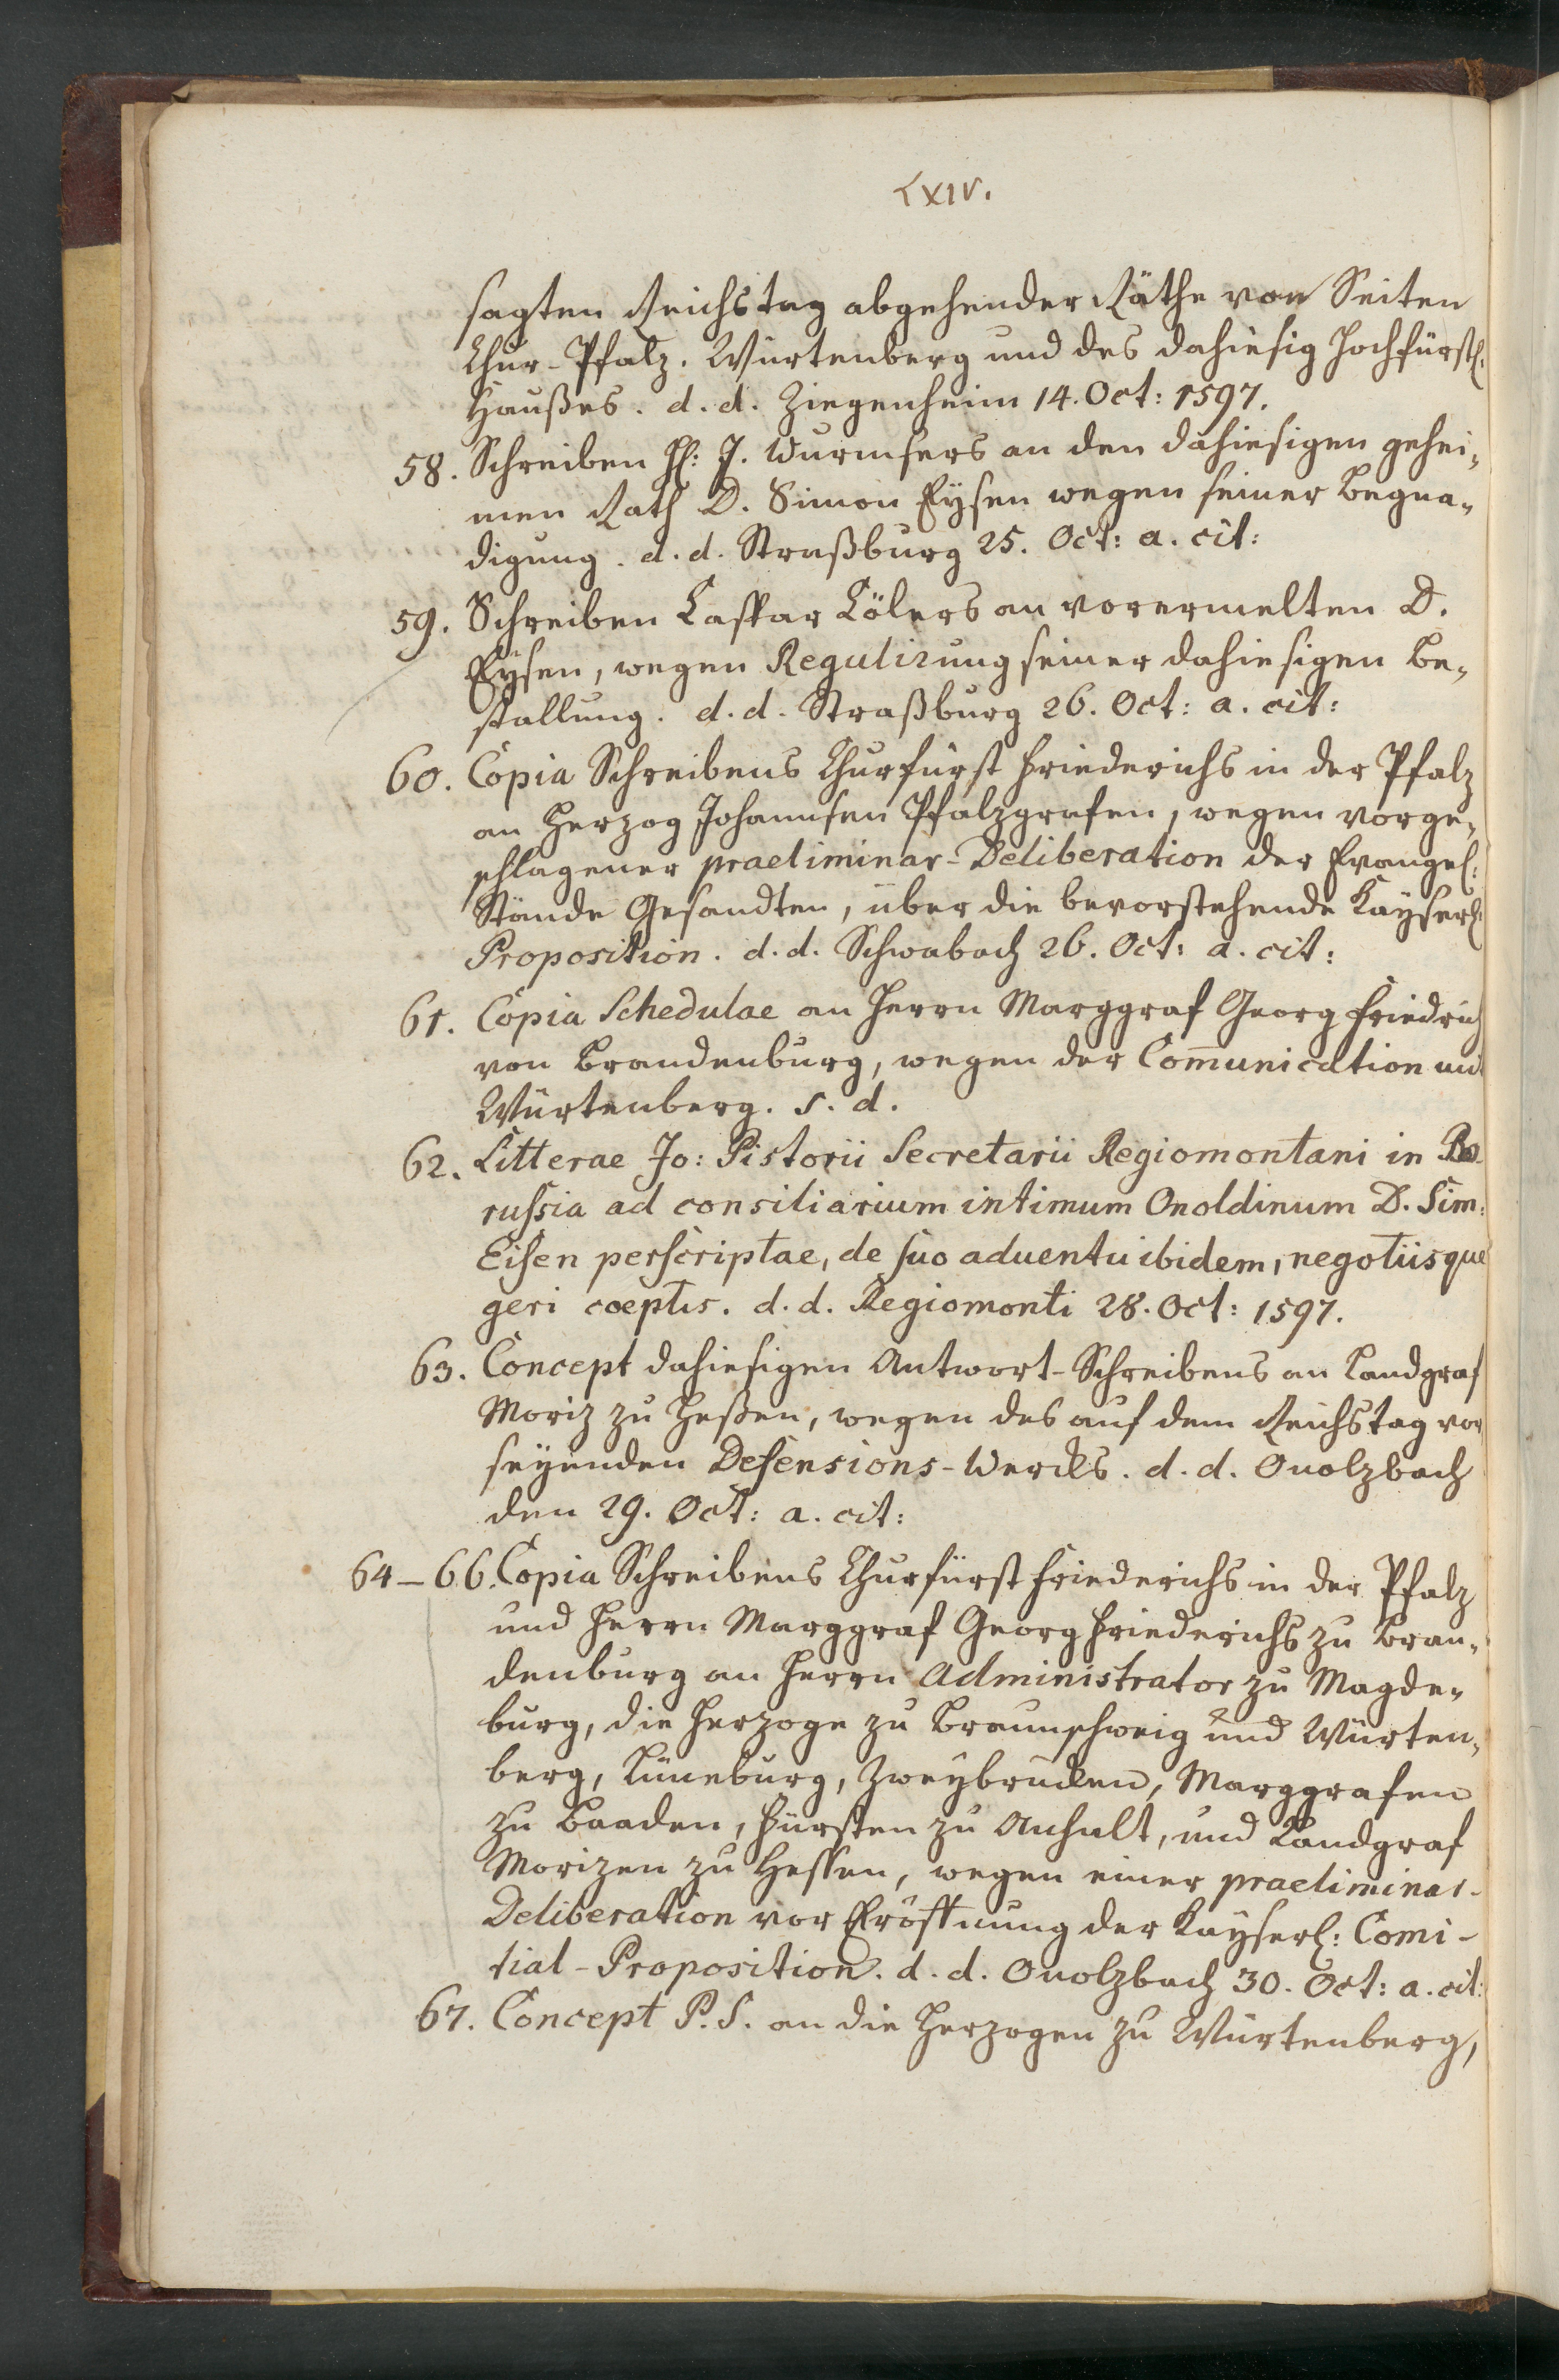 LXIV.
sagten Reichstag abgehender Räthe von Seiten
Chur-Pfalz. Würtenberg und des dahiesig Hochfürstl:
Haußes. d. d. Ziegenheim 14. Oct: 1597.
58. Schreiben H: J. Wurmsers an den dahiesigen gehei-
men Rath D. Simon Eysen wegen seiner Begna-
digung. d. d. Straßburg 25. Oct: a. cit:
59. Schreiben Caspar Cölers an vorermelten D.
Eysen, wegen Regulirung seiner dahiesigen Be-
stallung. d. d. Straßburg 26. Oct: a. cit:
60. Copia Schreibens Churfürst Friederichs in der Pfalz
an Herzog Johannsen Pfalzgrafen, wegen vorge-
schlagener praeliminar-Deliberation der Evangel:
Stände Gesandten, über die bevorstehende Kayserl:
Proposition. d. d. Schwabach 26. Oct: a. cit:
61. Copia Schedulae an Herrn Marggraf Georg Friedrich
von Brandenburg, wegen der Com̄unication mit
Würtenberg. s. d.
62. Litterae Jo: Pistorii Secretarii Regiomontani in Bo-
russia ad consiliarium intimum Onoldinum D. Sim:
Eisen perscriptae, de suo aduentu ibidem, negotiisque
geri coeptis. d. d. Regiomonti 28. Oct: 1597.
63. Concept dahiesigen Antwort-Schreibens an Landgraf
Moriz zu Heßen, wegen des auf dem Reichstag vor
seyenden Defensions-Wercks. d. d. Onolzbach
den 29. Oct: a. cit:
64–66. Copia Schreibens Churfürst Friederichs in der Pfalz
und Herrn Marggraf Georg Friederichs zu Bran-
denburg an Herrn Administrator zu Magde-
burg, die Herzoge zu Braunschweig und Würten-
berg, Lüneburg, Zweybrücken, Marggrafen
zu Baaden, Fürsten zu Anhalt, und Landgraf
Morizen zu Hessen, wegen einer praeliminar-
Deliberation vor Eröffnung der Kayserl: Comi-
tial-Proposition. d. d. Onolzbach 30. Oct: a. cit:
67. Concept P. S. an die Herzogen zu Würtenberg,